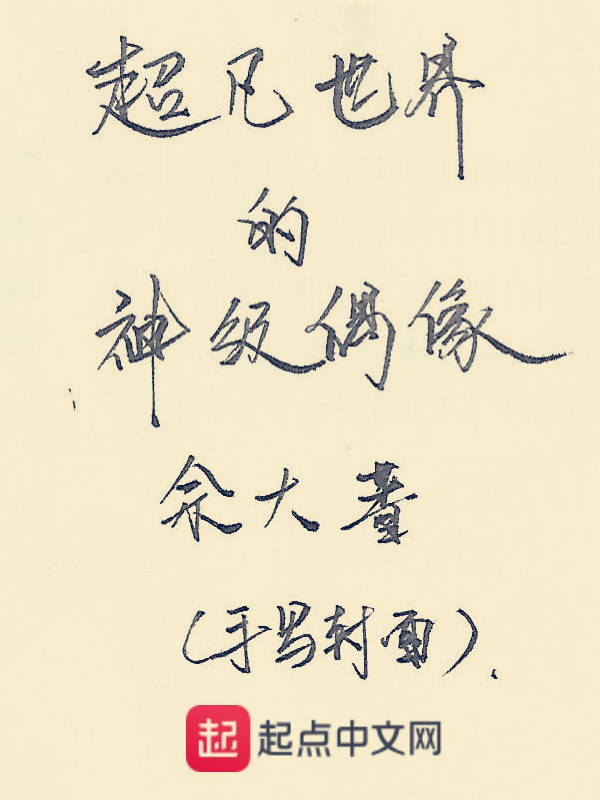 超凡世界
的
神级偶像
佘大耋
(手写封面)
起 起点中文网